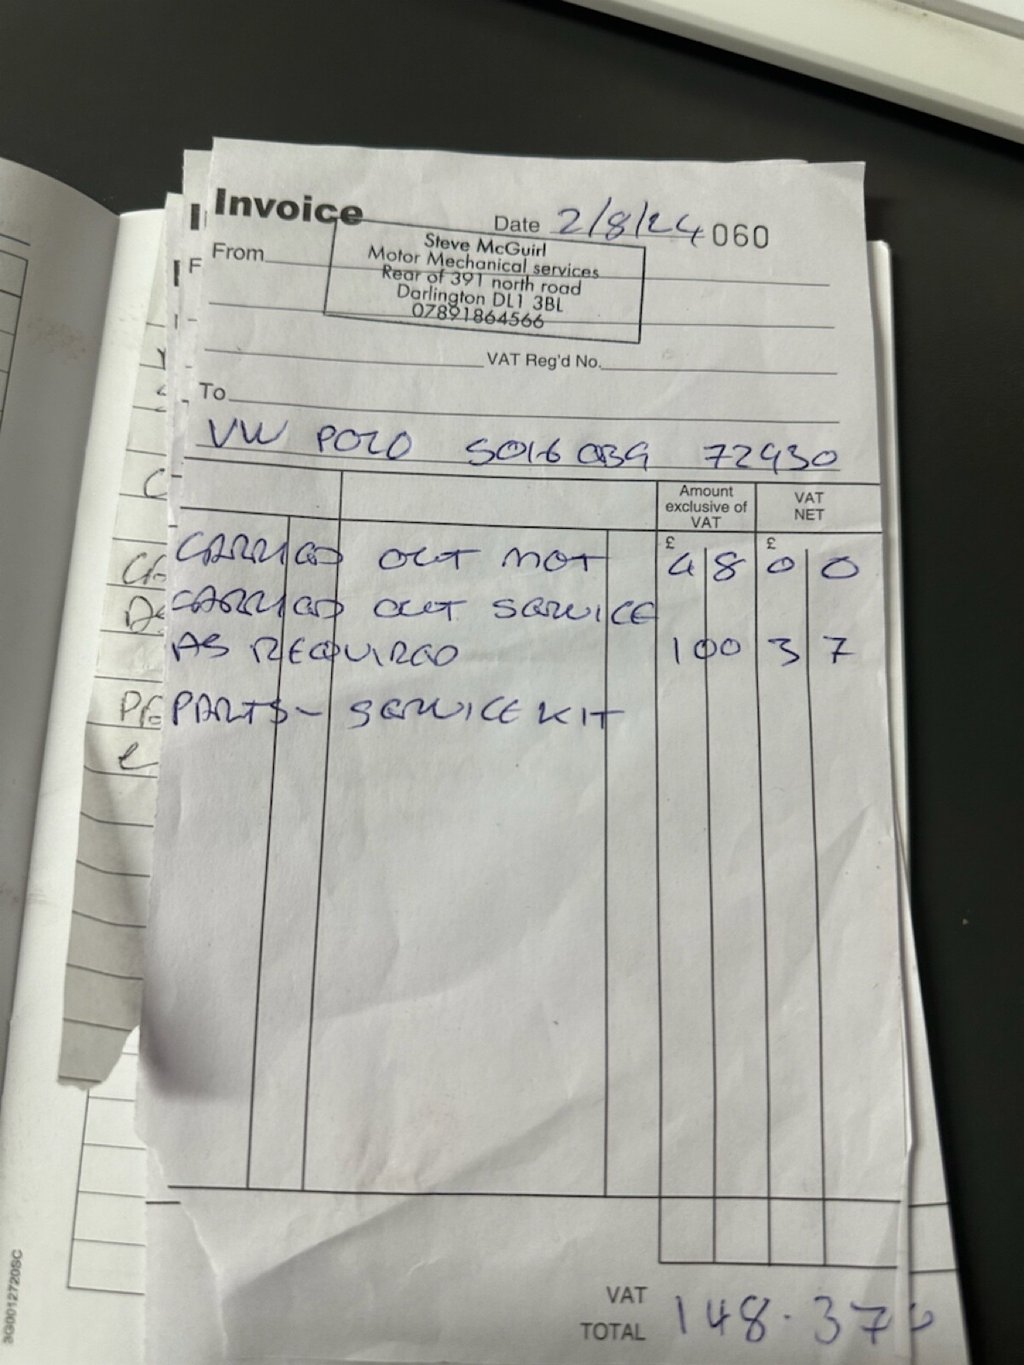 Invoice
Date 2/8/24 060
From
Steve McGuirl
Motor Mechanical services
Rear of 391 north road
Darlington DL1 3BL
07891864566
VAT Reg'd No.
To
VW POLO SO16 OBG 72930
Amount exclusive of VAT
VAT NET
£ £
CARRIED OUT MOT 48 00
CARRIED OUT SERVICE
AS REQUIRED 100 37
PARTS - SERVICE KIT
VAT
TOTAL 148.37
3G0012720SC